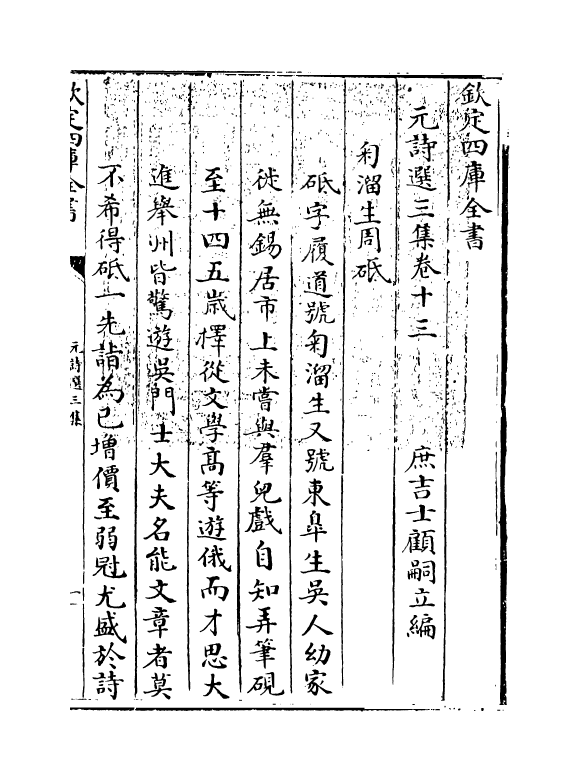 欽定四庫全書
元詩選三集卷十三　庶吉士顧嗣立編
匊溜生周砥
砥字履道號匊溜生又號東臯生吳人幼家
徙無錫居市上未嘗與羣兒戲自知弄筆硯
至十四五嵗擇從文學髙等遊俄而才思大
進舉州皆驚遊吳門士大夫名能文章者莫
不希得砥一先詣為已增價至弱冠尤盛於詩
欽定四庫全書
元詩選三集
一